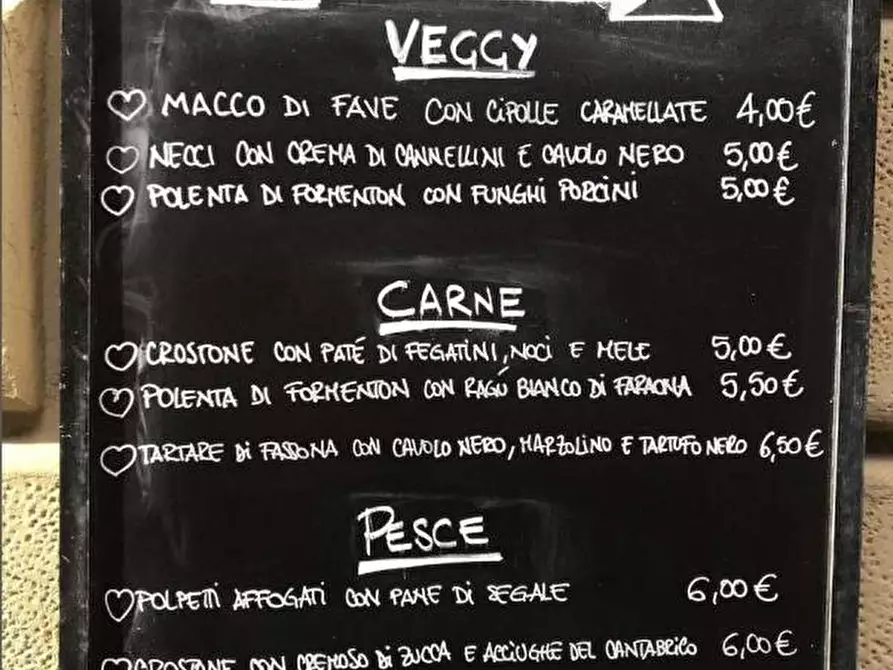 VEGGY
MACCO DI FAVE CON CIPOLLE CARAMELLATE 4,00€
NECCI CON CREMA DI CANNELLINI E CAVOLO NERO 5,00€
POLENTA DI FORMENTON CON FUNGHI PORCINI 5,00€
CARNE
CROSTONE CON PATÉ DI FEGATINI, NOCI E MELE 5,00€
POLENTA DI FORMENTON CON RAGÚ BIANCO DI FARAONA 5,50€
TARTARE DI FASSONA CON CAVOLO NERO, MARZOLINO E TARTUFO NERO 6,50€
PESCE
POLPETTI AFFOGATI CON PANE DI SEGALE 6,00€
CROSTONE CON CREMOSO DI ZUCCA E ACCIUGHE DEL CANTABRICO 6,00€